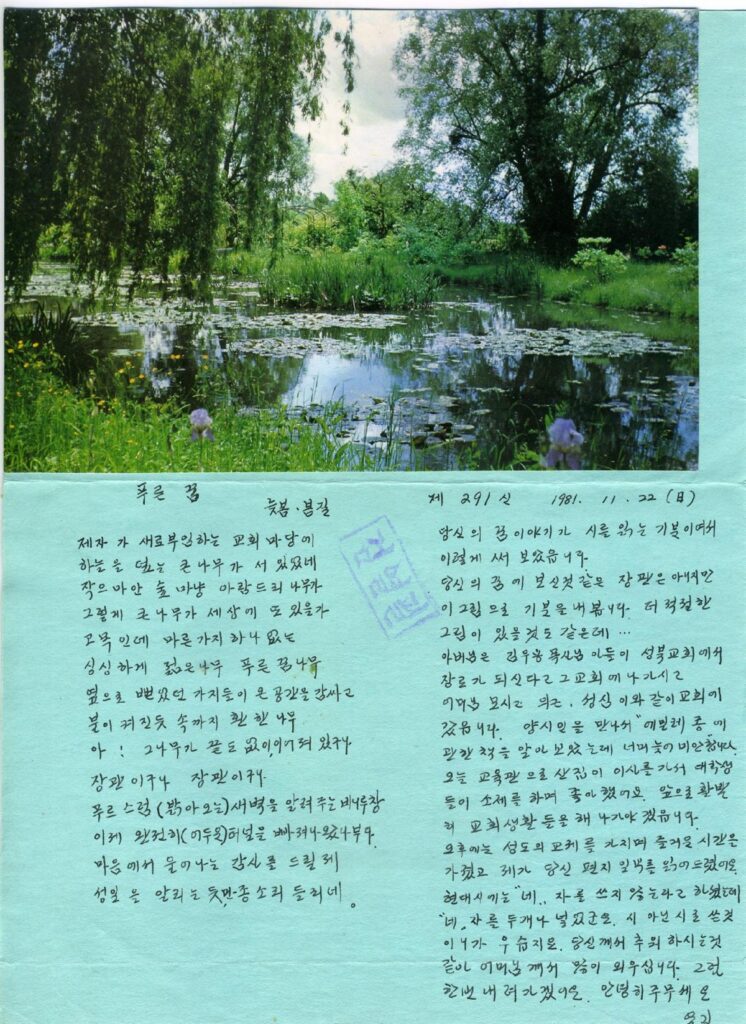 푸른 꿈
늦봄·봄길
제자가 새로 부임하는 교회 마당에
하늘을 덮는 큰 나무가 서 있었네
작으마안 숲 마냥 아람드리 나무가
그렇게 큰 나무가 세상에 또 있을가
고목인데 마른 가지 하나 없는
싱싱하게 젊은 나무 푸른 꿈나무
옆으로 뻗었던 가지들이 온 공간을 감싸고
불이 켜진듯 속까지 환한 나무
아! 그 나무가 끝도 없이 이어져 있구나
장관이구나 장관이구나
푸르스럼 (밝아오는) 새벽을 알려 주는
이제 완전히 (어두운) 터널을 빠져 나왔나부다.
마음에서 울어나는 감사를 드릴 제
성일을 알리는 종소리 들리네.
제 291 신 1981. 11. 22 (日)
당신의 꿈 이야기가 시를 읽는 기분이여서
이렇게 써 보았읍니다.
당신의 꿈에 보신것 같은 장관은 아니지만
이 그림으로 기분을 내 봅니다. 더 적절한
그림이 있을것도 같은데 …
아버님은 김우종 목사님 아들이 성북교회에서
장로가 되신다고 그 교회에 나가시고
어머님 모시고 의근, 성심이와 같이 교회에
갔읍니다. 양시인을 만나서 "에밀레 종"에
관한 책을 알아 보았는데 너머 늦어 미안합니다.
오늘 교육관으로 산 집이 이사를 가서 대학생
들이 소제를 하며 좋아했어요. 앞으로 활발
히 교회생활들을 해 나가야 겠읍니다.
오후에는 성도의 교제를 가지며 즐거운 시간을
가졌고 제가 당신 편지 일부를 읽어 드렸어요.
현대시에는 "네" 자를 쓰지 않는다고 하셨는데
"네" 자를 두개나 넣었군요. 시 아닌 시로 쓴것
이니가 우습지요. 당신께서 추워 하시는것
같아 어머님께서 많이 외우십니다. 그럼
한번 내려가겠어요. 안녕히 주무세요